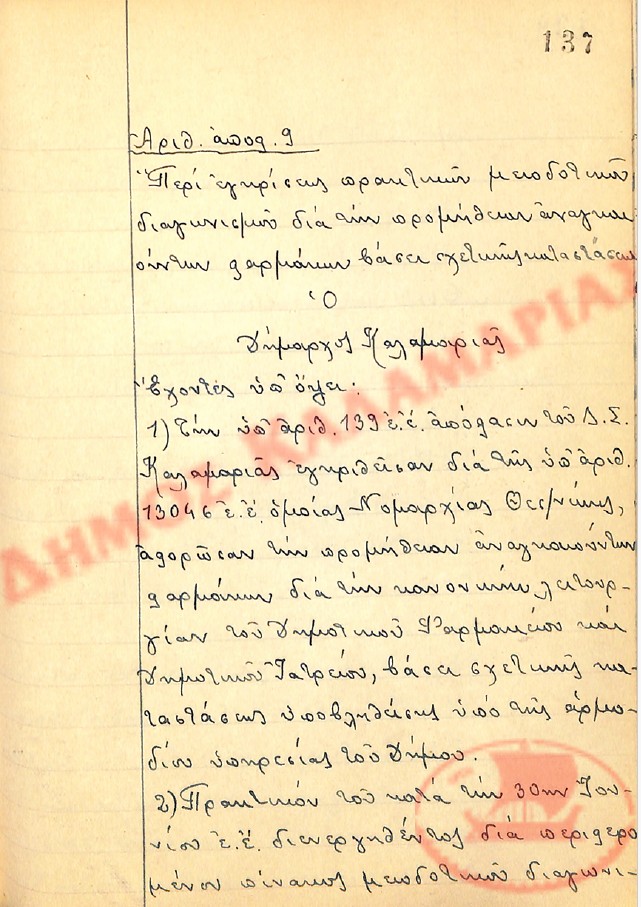 137
Ἀριθ. ἀποφ. 9
"Περί ἐγκρίσεως πρακτικοῦ μειοδοτικοῦ
διαγωνισμοῦ διά τήν προμήθειαν ἀναγκαι
ούντων φαρμάκων βάσει σχετικῆς καταστάσεως
Ὁ
Δήμαρχος Καλαμαριᾶς
Ἔχοντες ὑπ' ὄψει:
1) Τήν ὑπ' ἀριθ. 139 ἐ.ἔ. ἀπόφασιν τοῦ Δ.Σ.
Καλαμαριᾶς ἐγκριθεῖσαν διά τῆς ὑπ' ἀριθ.
13046 ἐ.ἔ. ὁμοίας Νομαρχίας Θεσ/νίκης,
ἀφορῶσαν τήν προμήθειαν ἀναγκαιούντων
φαρμάκων διά τήν κανονικήν λειτουρ-
γίαν τοῦ Δημοτικοῦ Φαρμακείου καί
Δημοτικοῦ Ἰατρείου, βάσει σχετικῆς κα-
ταστάσεως ὑποβληθείσης ὑπό τῆς ἁρμο-
δίου ὑπηρεσίας τοῦ Δήμου.
2) Πρακτικόν τοῦ κατά τήν 30ην Ἰου-
νίου ἐ.ἔ. διενεργηθέντος διά περιφερο
μένου πίνακος μειοδοτικοῦ διαγωνι-
ΔΗΜΟΣ ΚΑΛΑΜΑΡΙΑΣ